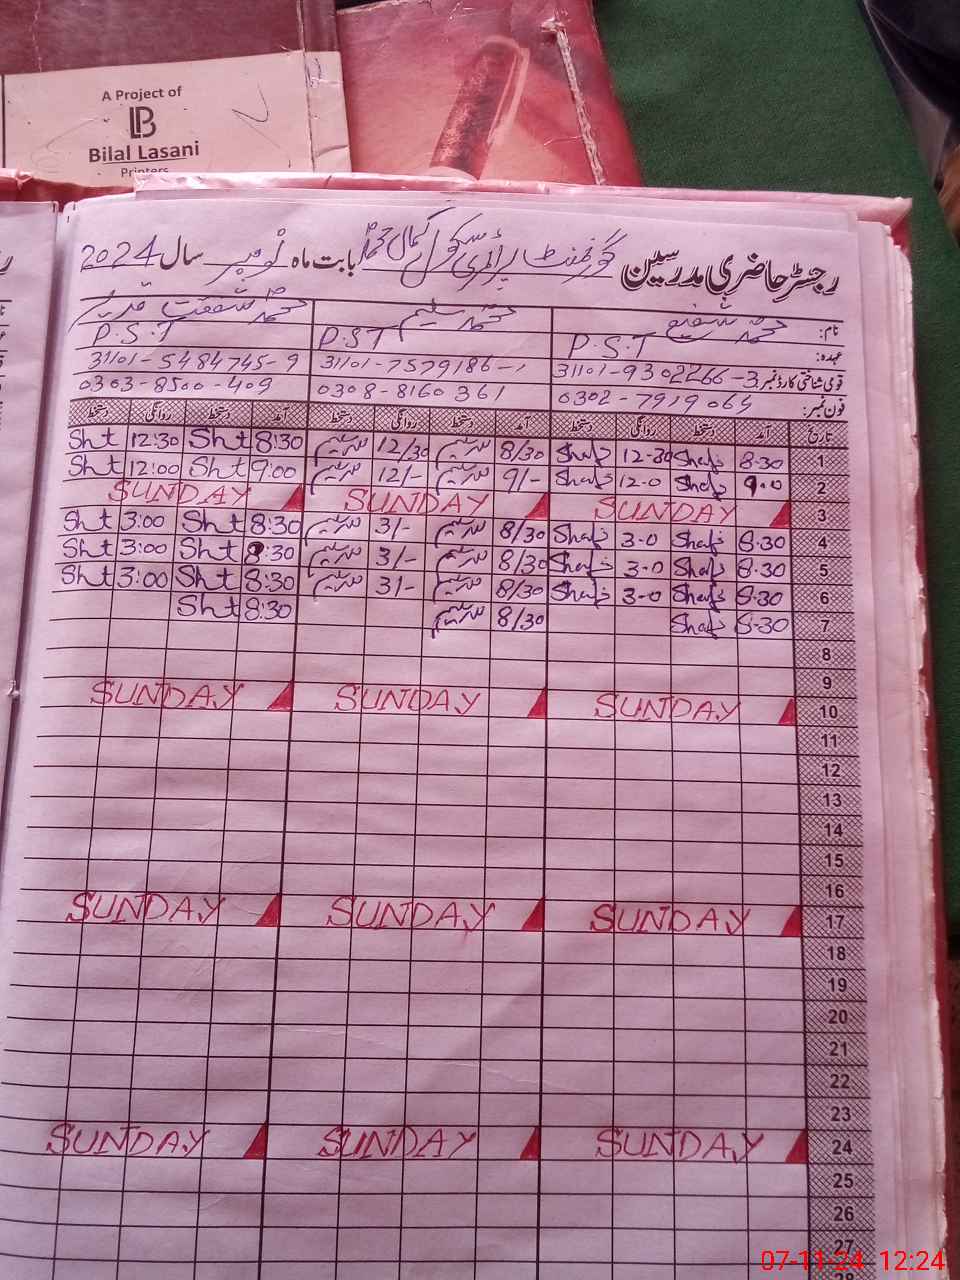 A Project of
LB
Bilal Lasani
Printers
رجسٹر حاضری مدرسین گورنمنٹ پرائمری سکول کمال بابت ماہ نومبر سال 2024
نام: محمد شفیق محمد سلیم محمد شفقت
عہدہ: P.S.T P.S.T P.S.T
قومی شناختی کارڈ نمبر: 31101-9302266-3 31101-7579186-1 31101-5484745-9
فون نمبر: 0302-7919064 0308-8160361 0303-8500-409
تاریخ آمد دستخط روانگی دستخط آمد دستخط روانگی دستخط آمد دستخط روانگی دستخط
1 8-30 Shafs 12-30 Shafs 8/30 سلیم 12/30 سلیم 8:30 Sht 12:30 Sht
2 9-0 Shafs 12-0 Shafs 9/- سلیم 12/- سلیم 9:00 Sht 12:00 Sht
3 SUNDAY SUNDAY SUNDAY
4 8-30 Shafs 3-0 Shafs 8/30 سلیم 3/- سلیم 8:30 Sht 3:00 Sht
5 8-30 Shafs 3-0 Shafs 8/30 سلیم 3/- سلیم 8:30 Sht 3:00 Sht
6 8-30 Shafs 3-0 Shafs 8/30 سلیم 3/- سلیم 8:30 Sht 3:00 Sht
7 8-30 Shafs 8/30 سلیم 8:30 Sht
8
9
10 SUNDAY SUNDAY SUNDAY
11
12
13
14
15
16
17 SUNDAY SUNDAY SUNDAY
18
19
20
21
22
23
24 SUNDAY SUNDAY SUNDAY
25
26
27
07-11-24 12:24